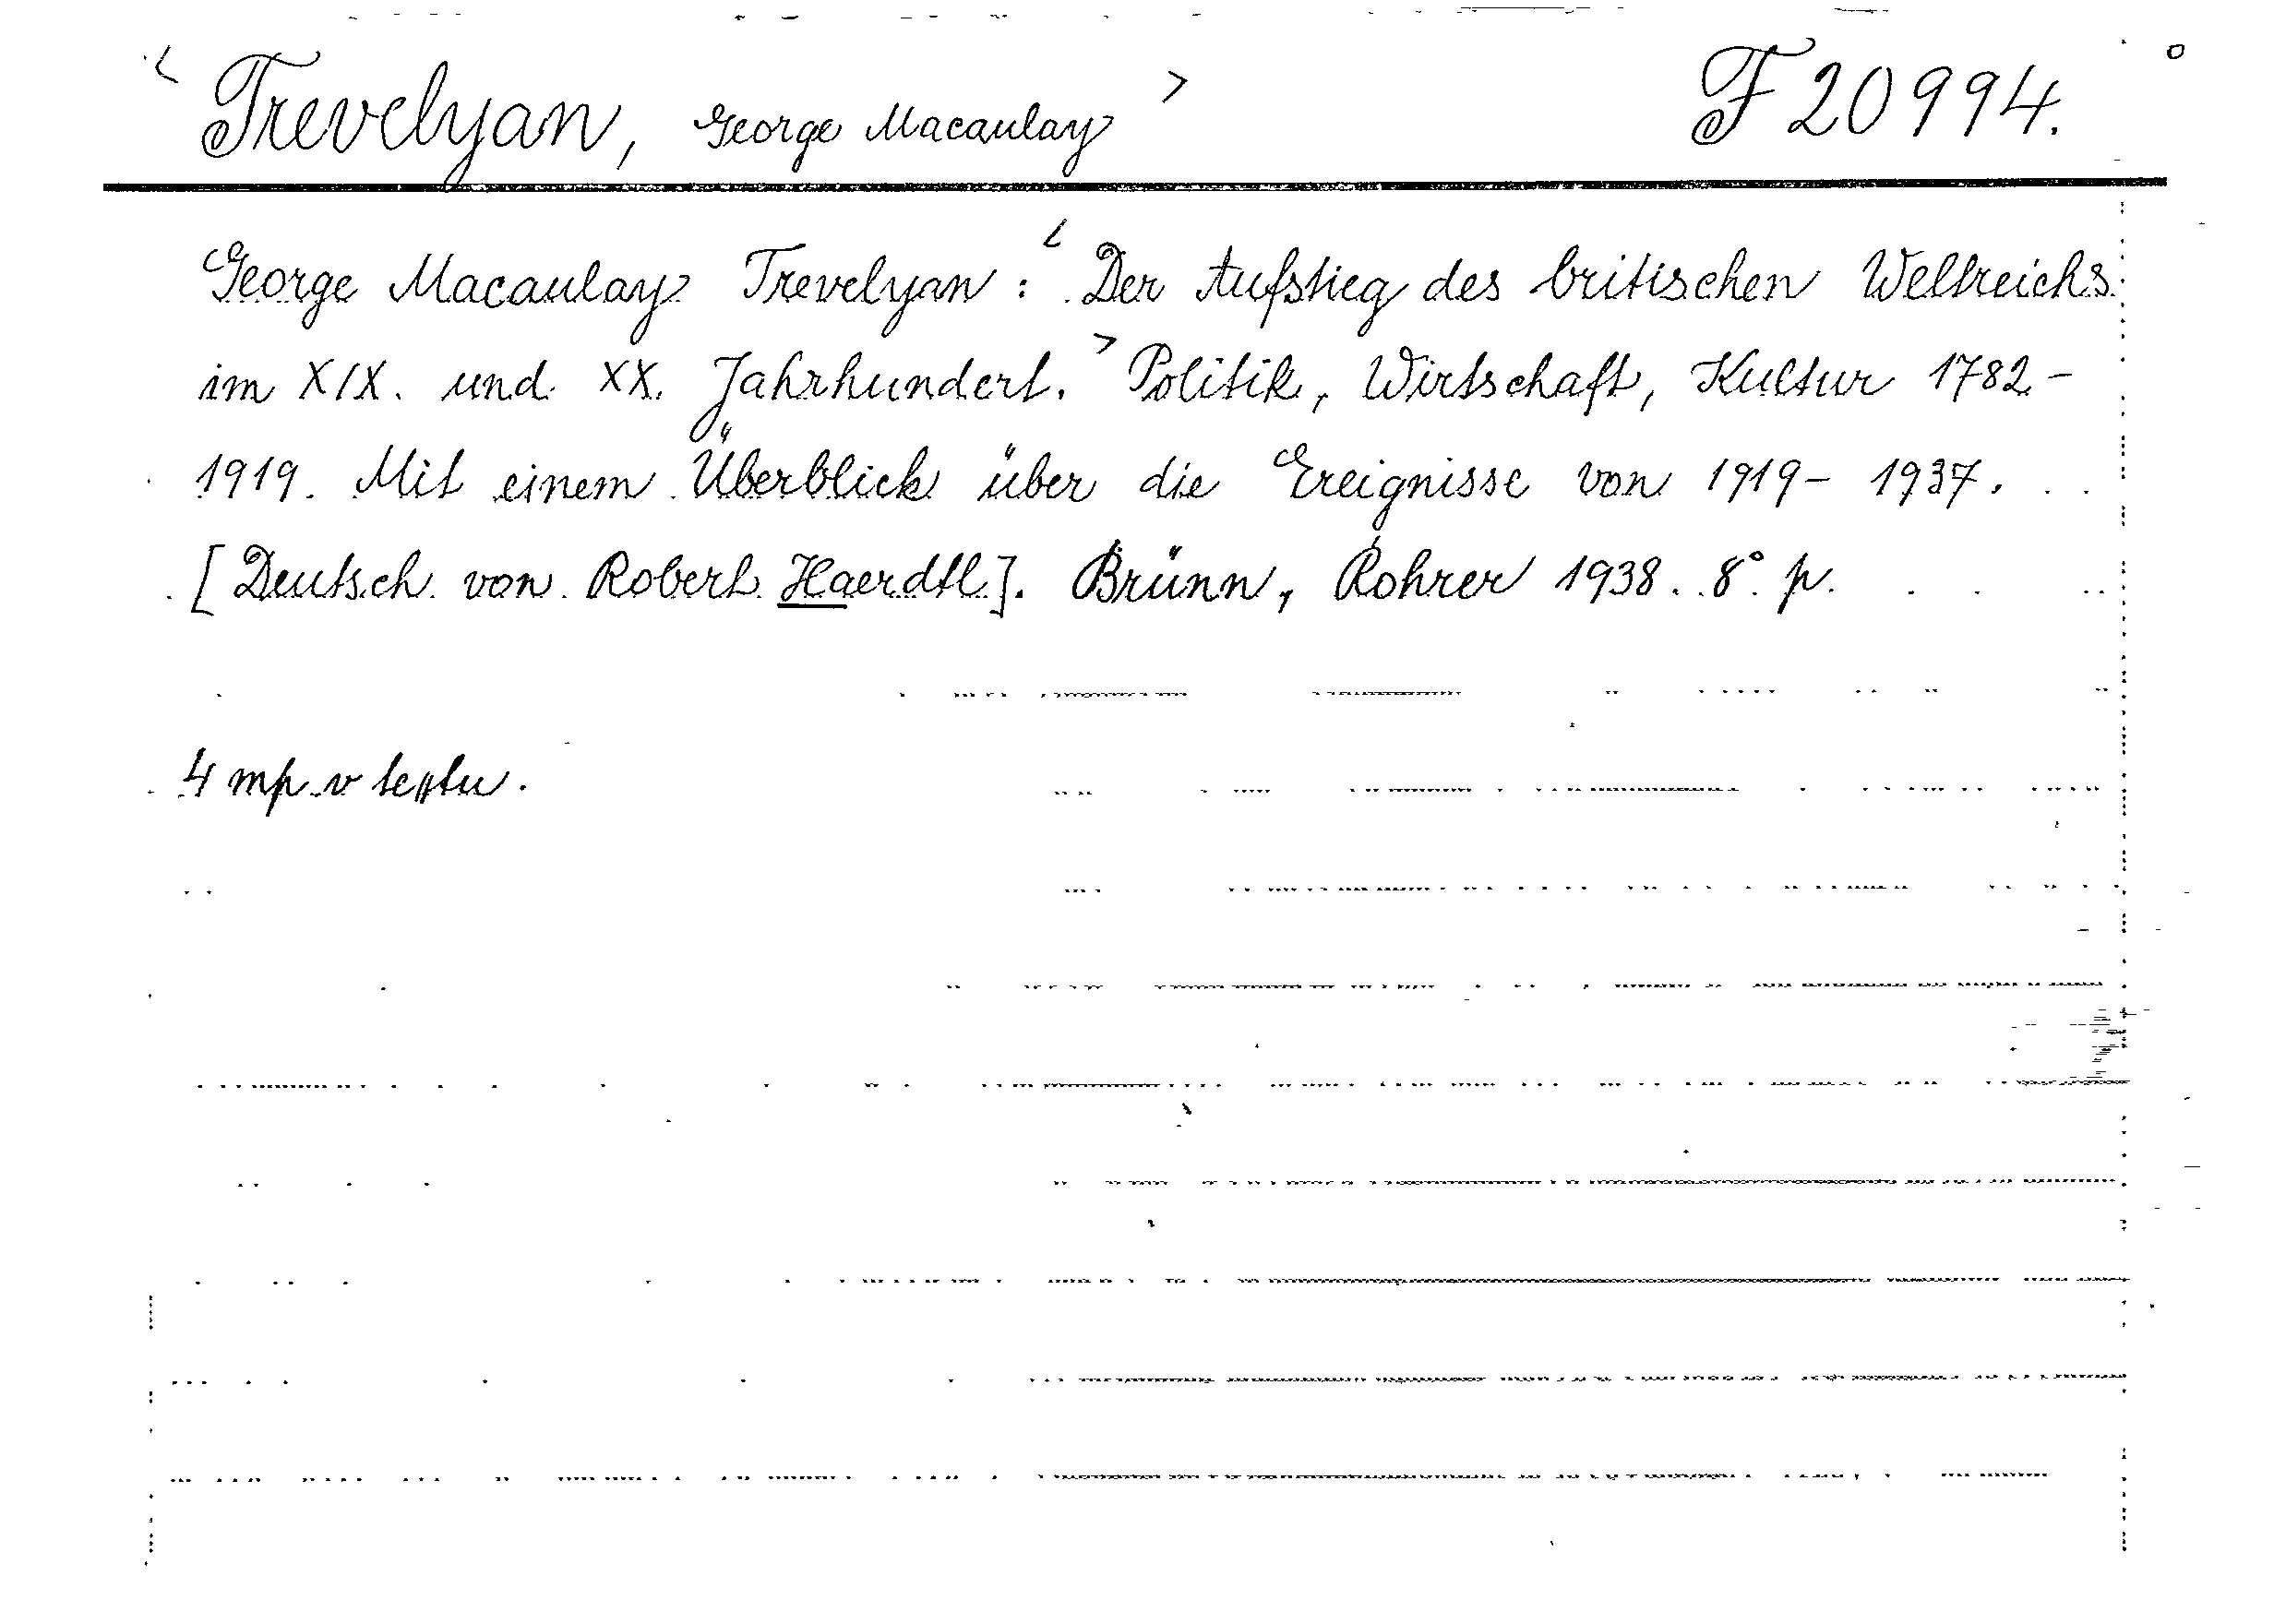 < Trevelyan, George Macaulay > F 20994.
George Macaulay Trevelyan: < Der Aufstieg des britischen Weltreichs
im XIX. und XX. Jahrhundert. > Politik, Wirtschaft, Kultur 1782-
1919. Mit einem Überblick über die Ereignisse von 1919-1937.
[Deutsch von Robert Haerdtl]. Brünn, Rohrer 1938. 8° p.
4 mp v textu.